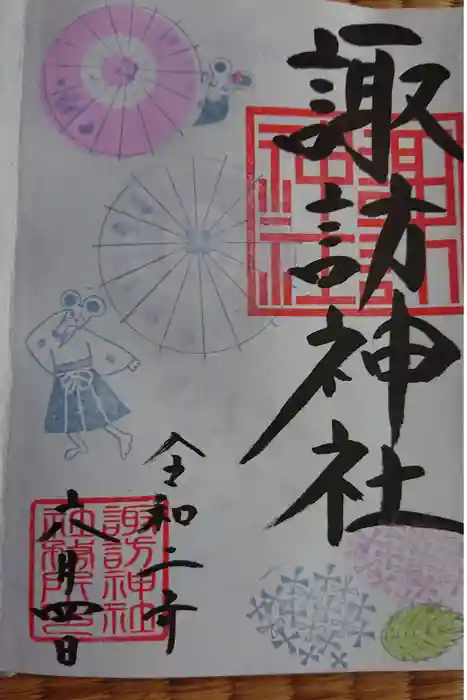 諏訪神社
令和二年
六月四日
諏訪神社
諏訪神社
社務所印